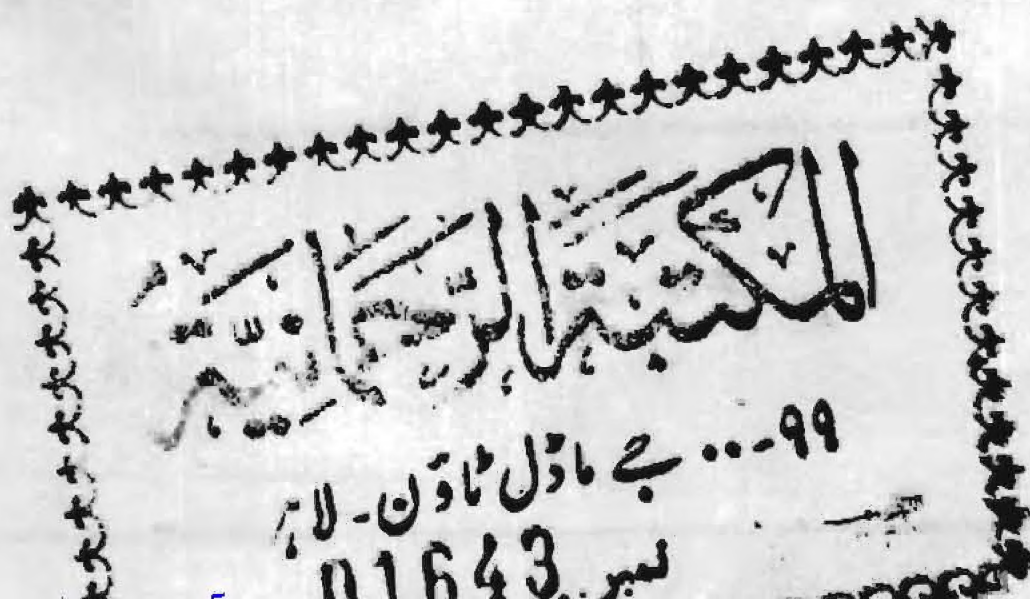 المكتبة الرحمانية
۹۹-... جے ماڈل ٹاؤن - لاہر
نمبر..01643